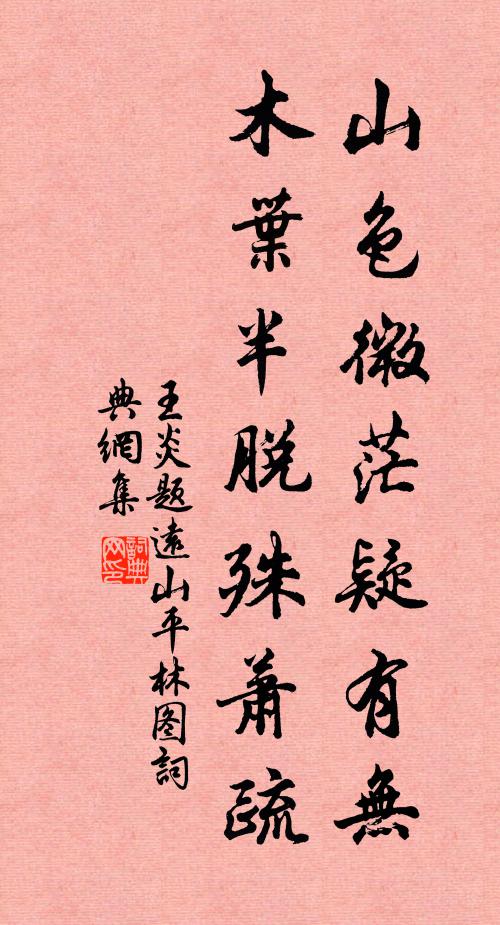 山色微茫疑有無
木葉半脱殊蕭疏
王炎题遠山平林图詞
典網集
詞典网印